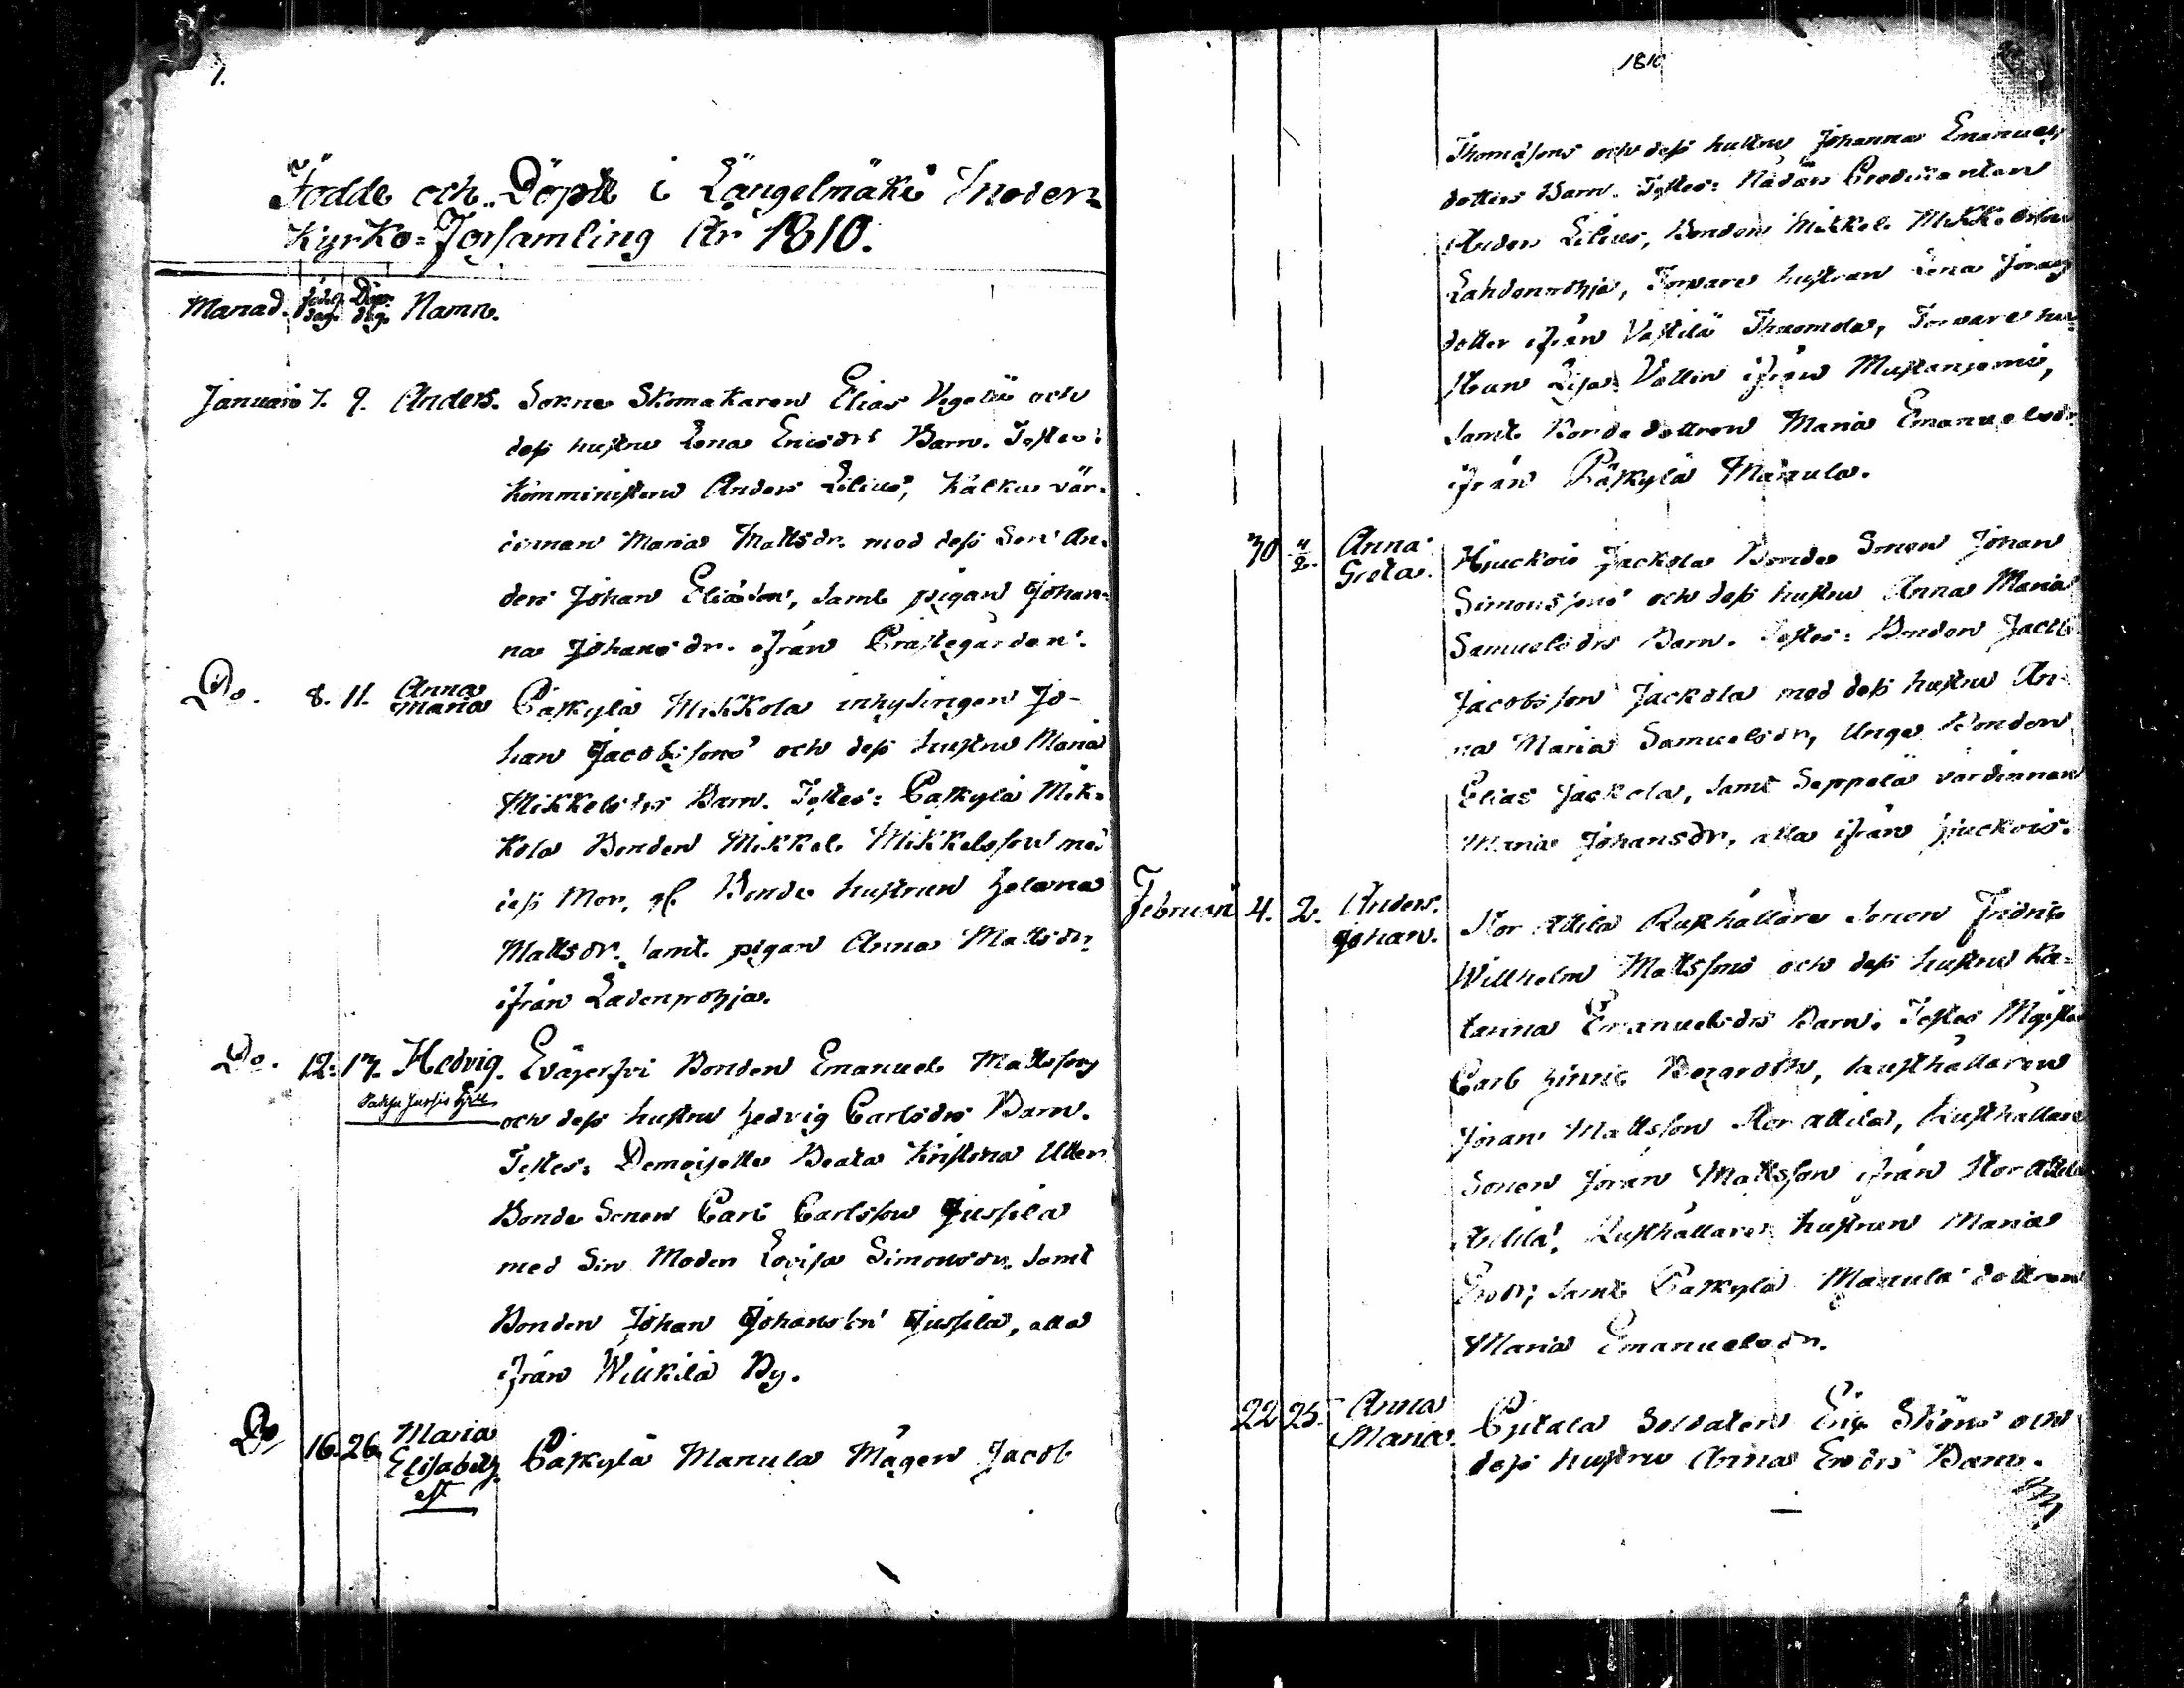 1.
Födde och Döpte i Längelmäki Moder-
Kyrko-Församling År 1810.
Månad. födelse dag. Döpe dag. Namn.
Januari 7. 9. Anders. Sokne Skomakaren Elias och
dess hustru Lena Ericsdrs Barn. Testes:
Komministern Anders Lilius, Kalku vär-
dinnan Maria Mattsdr. med dess Son An-
ders Johan Eliasson, samt pigan Johan-
na Johansdr. ifrån Prästegården.
Do. 8. 11. Anna Maria Påskylä Mikkola inhysingen Jo-
han Jacobssons och dess hustru Maria
Mikkelsdrs Barn. Testes: Påskylä Mik-
kola Bonden Mikkel Mikkelsson med
dess Mor, gl. Bonde hustrun Helena
Mattsdr. samt pigan Anna Mattsdr.
ifrån Ladenpohja.
Do. 12. 17. Hedvig. Eväjerfvi Bonden Emanuel Mattssons
och dess hustru Hedvig Carlsdrs Barn.
Testes: Demoiselle Beata Kristina Utter
Bonde Sonen Carl Carlsson Jussila
med Sin Moder Lovisa Simonsdr. samt
Bonden Johan Johansson Jussila, alla
ifrån Wilkilä By.
Do 16. 26. Maria Elisabeth Påskylä Manula Mågen Jacob
1810
Thomassons och dess hustru Johanna Emanuels
dotters Barn. Testes: Nådårs Predikanten
Anders Lilius, Bonden Mikkel Mikkelsson
Lahdenpohja, Torpare hustrun Lena Jörans
dotter ifrån Västilä Thuomola, Torpare hu-
strun Lisa Vallin ifrån Mustaniemi,
samt Bonde dottren Maria Emanuelsdr.
ifrån Påskylä Manula.
30 4/2. Anna Greta. Hjuckois Jackola Bonde Sonen Johan
Simonssons och dess hustru Anna Maria
Samuelsdrs Barn. Testes: Bonden Jacob
Jacobsson Jackola med dess hustru An-
na Maria Samuelsdr, Unge Bonden
Elias Jackola, samt Seppälä värdinnan
Maria Johansdr, alla ifrån Hjuckois.
Februari 4. 2. Anders Johan. Stor Attila Rusthållare Sonen Fridric
Willhelm Mattssons och dess hustru Ka-
tarina Emanuelsdrs Barn. Testes
Carl Henric, Rusthållaren
Jöran Mattsson Stor Attila, Rusthållare
Sonen Jöran Mattsson ifrån Stor Attila
Attila, Rusthållare hustrun Maria
samt Påskylä Manula dottren
Maria Emanuelsdr.
22 25. Anna Maria. Pytala Soldaten Eric Sköns och
dess hustru Anna Ersdrs Barn.